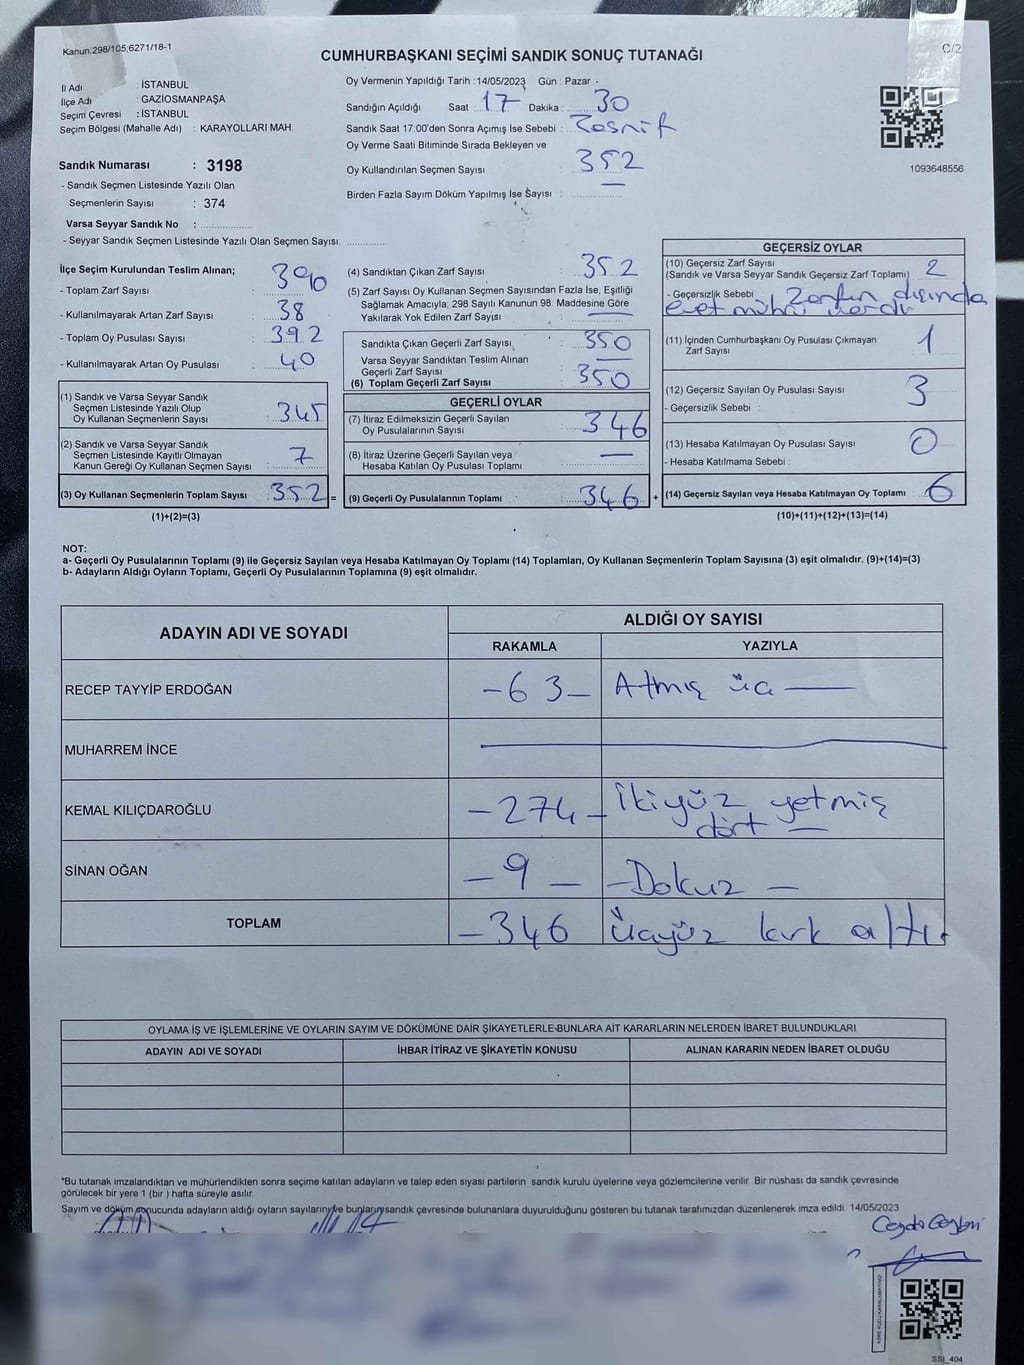 Kanun:298/105;6271/18-1
C/2
CUMHURBAŞKANI SEÇİMİ SANDIK SONUÇ TUTANAĞI
İl Adı : İSTANBUL
İlçe Adı : GAZİOSMANPAŞA
Seçim Çevresi : İSTANBUL
Seçim Bölgesi (Mahalle Adı) : KARAYOLLARI MAH.
Sandık Numarası : 3198
- Sandık Seçmen Listesinde Yazılı Olan
Seçmenlerin Sayısı : 374
Varsa Seyyar Sandık No :
- Seyyar Sandık Seçmen Listesinde Yazılı Olan Seçmen Sayısı:
Oy Vermenin Yapıldığı Tarih :14/05/2023 Gün : Pazar
Sandığın Açıldığı Saat : 17 Dakika : 30
Sandık Saat 17:00'den Sonra Açımış İse Sebebi : Tasnif
Oy Verme Saati Bitiminde Sırada Bekleyen ve
Oy Kullandırılan Seçmen Sayısı : 352
Birden Fazla Sayım Döküm Yapılmış İse Sayısı : —
1093648556
İlçe Seçim Kurulundan Teslim Alınan;
- Toplam Zarf Sayısı : 390
- Kullanılmayarak Artan Zarf Sayısı : 38
- Toplam Oy Pusulası Sayısı : 392
- Kullanılmayarak Artan Oy Pusulası : 40
(1) Sandık ve Varsa Seyyar Sandık
Seçmen Listesinde Yazılı Olup
Oy Kullanan Seçmenlerin Sayısı : 345
(2) Sandık ve Varsa Seyyar Sandık
Seçmen Listesinde Kayıtlı Olmayan
Kanun Gereği Oy Kullanan Seçmen Sayısı : 7
(3) Oy Kullanan Seçmenlerin Toplam Sayısı : 352 =
(1)+(2)=(3)
(4) Sandıktan Çıkan Zarf Sayısı : 352
(5) Zarf Sayısı Oy Kullanan Seçmen Sayısından Fazla İse, Eşitliği
Sağlamak Amacıyla; 298 Sayılı Kanunun 98. Maddesine Göre
Yakılarak Yok Edilen Zarf Sayısı : —
Sandıkta Çıkan Geçerli Zarf Sayısı : 350
Varsa Seyyar Sandıktan Teslim Alınan
Geçerli Zarf Sayısı : —
(6) Toplam Geçerli Zarf Sayısı : 350
GEÇERLİ OYLAR
(7) İtiraz Edilmeksizin Geçerli Sayılan
Oy Pusulalarının Sayısı : 346
(8) İtiraz Üzerine Geçerli Sayılan veya
Hesaba Katılan Oy Pusulası Toplamı : —
(9) Geçerli Oy Pusulalarının Toplamı : 346 +
GEÇERSİZ OYLAR
(10) Geçersiz Zarf Sayısı
(Sandık ve Varsa Seyyar Sandık Geçersiz Zarf Toplamı) : 2
- Geçersizlik Sebebi : Zarfın dışında
evet mührü vardı
(11) İçinden Cumhurbaşkanı Oy Pusulası Çıkmayan
Zarf Sayısı : 1
(12) Geçersiz Sayılan Oy Pusulası Sayısı : 3
- Geçersizlik Sebebi :
(13) Hesaba Katılmayan Oy Pusulası Sayısı : 0
- Hesaba Katılmama Sebebi :
(14) Geçersiz Sayılan veya Hesaba Katılmayan Oy Toplamı : 6
(10)+(11)+(12)+(13)=(14)
NOT:
a- Geçerli Oy Pusulalarının Toplamı (9) ile Geçersiz Sayılan veya Hesaba Katılmayan Oy Toplamı (14) Toplamları, Oy Kullanan Seçmenlerin Toplam Sayısına (3) eşit olmalıdır. (9)+(14)=(3)
b- Adayların Aldığı Oyların Toplamı, Geçerli Oy Pusulalarının Toplamına (9) eşit olmalıdır.
ADAYIN ADI VE SOYADI
ALDIĞI OY SAYISI
RAKAMLA YAZIYLA
RECEP TAYYİP ERDOĞAN -63- Atmış üç —
MUHARREM İNCE —
KEMAL KILIÇDAROĞLU -274- İkiyüz yetmiş
dört —
SİNAN OĞAN -9- -Dokuz-
TOPLAM -346 Üçyüz kırk altı.
OYLAMA İŞ VE İŞLEMLERİNE VE OYLARIN SAYIM VE DÖKÜMÜNE DAİR ŞİKAYETLERLE-BUNLARA AİT KARARLARIN NELERDEN İBARET BULUNDUKLARI
ADAYIN ADI VE SOYADI İHBAR İTİRAZ VE ŞİKAYETİN KONUSU ALINAN KARARIN NEDEN İBARET OLDUĞU
*Bu tutanak imzalandıktan ve mühürlendikten sonra seçime katılan adayların ve talep eden siyasi partilerin sandık kurulu üyelerine veya gözlemcilerine verilir. Bir nüshası da sandık çevresinde
görülecek bir yere 1 (bir ) hafta süreyle asılır.
Sayım ve döküm sonucunda adayların aldığı oyların sayılarını ve bunların sandık çevresinde bulunanlara duyurulduğunu gösteren bu tutanak tarafımızdan düzenlenerek imza edildi. 14/05/2023
SSI_404